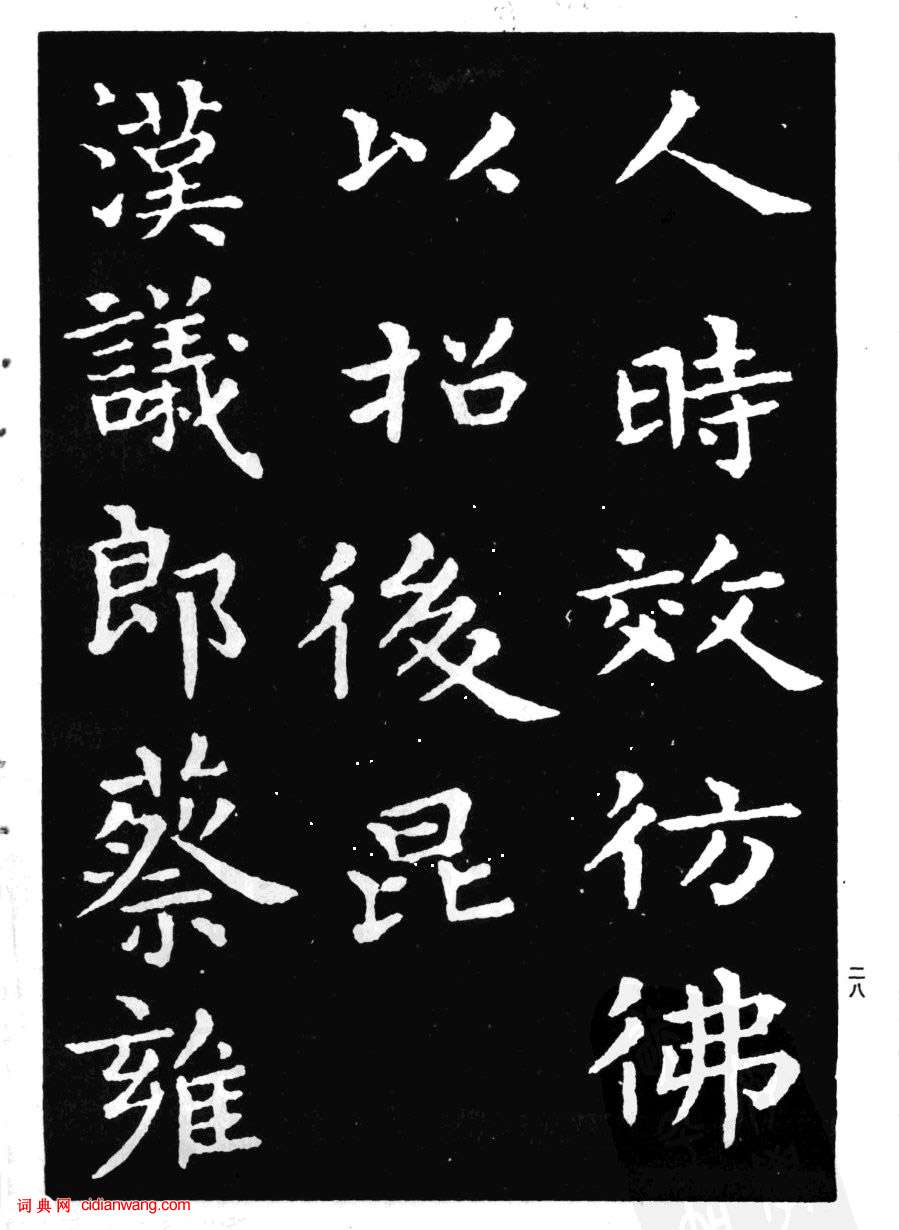 人時效彷彿
以招後昆
漢議郎蔡雍
二八
词典网 cidianwang.com